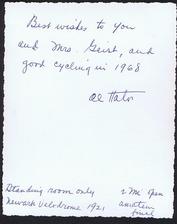 Best wishes to you
and Mrs. Geist, and
good cycling in 1968
Al
Standing room only
Newark Velodrome 1921
2 Mi open
amateur
final